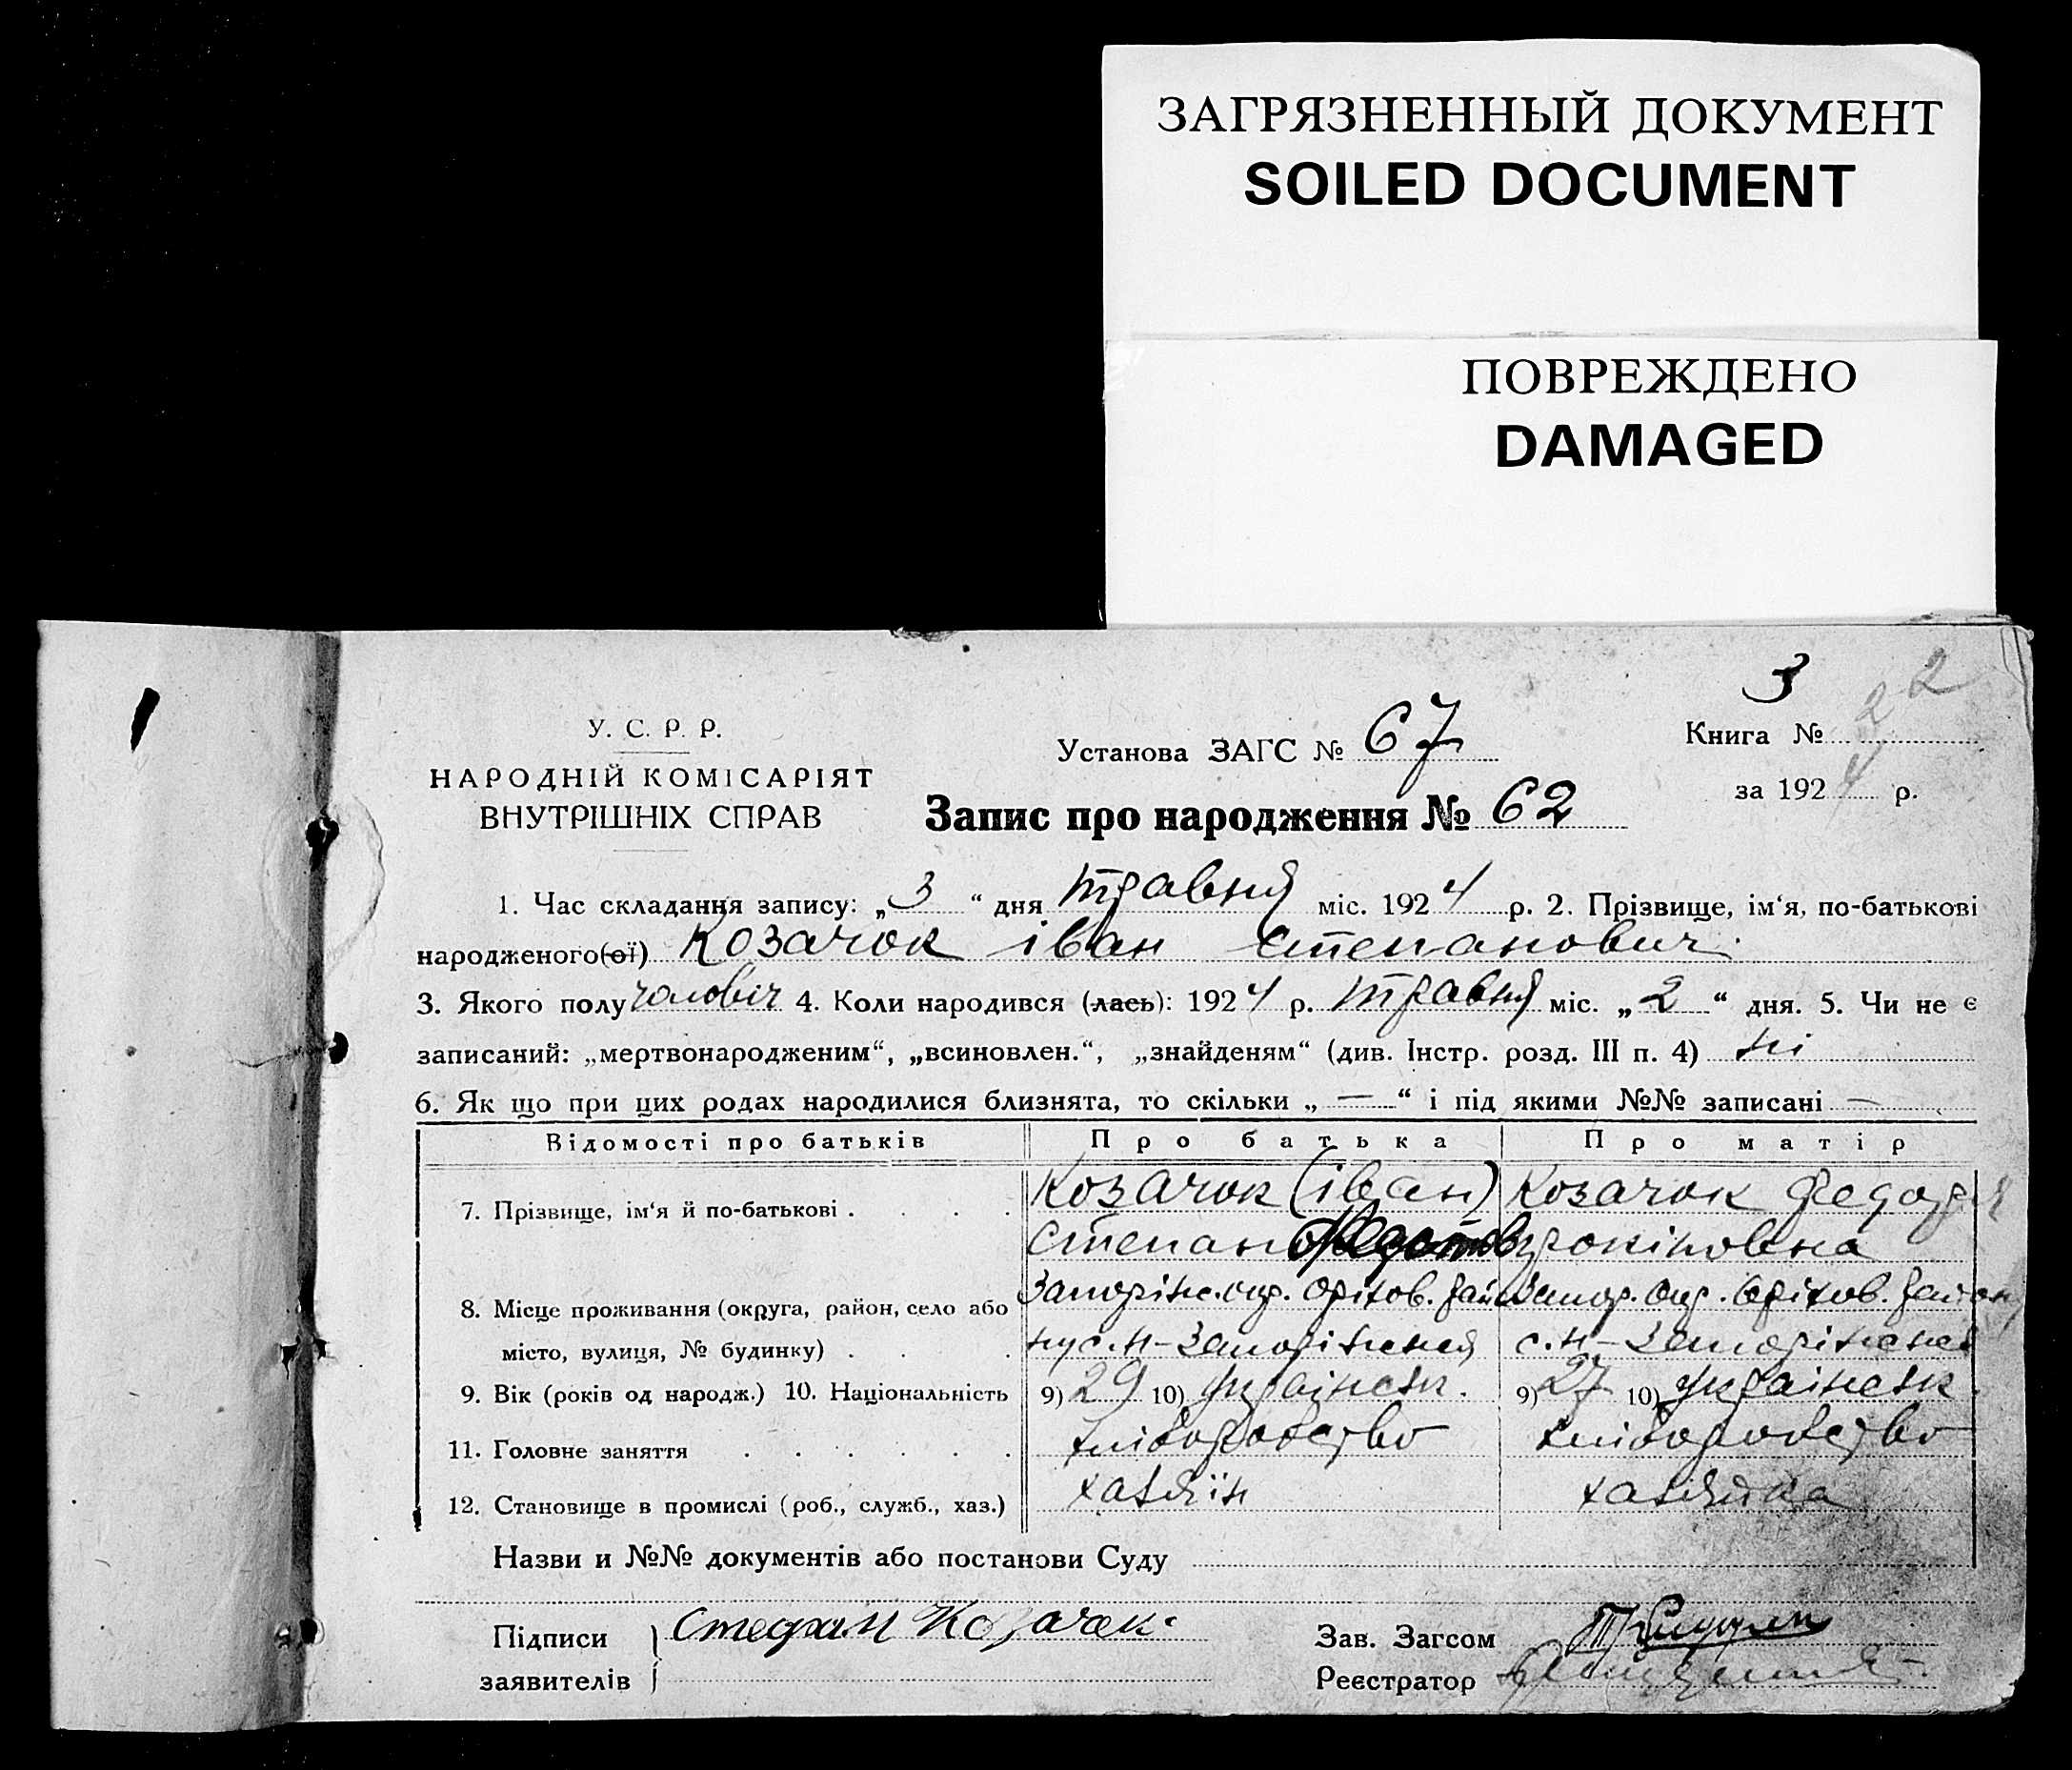 ЗАГРЯЗНЕННЫЙ ДОКУМЕНТ
SOILED DOCUMENT
ПОВРЕЖДЕНО
DAMAGED
3
22
У. С. Р. Р.
НАРОДНІЙ КОМІСАРІЯТ
ВНУТРІШНІХ СПРАВ
Установа ЗАГС № 67
Книга №
за 1924 р.
Запис про народження № 62
1. Час складання запису: „3“ дня травня міс. 1924 р. 2. Прізвище, ім‘я, по-батькові
народженого(ої) Козачок іван Степанович.
3. Якого полу чоловіч 4. Коли народився (лась): 1924 р. травня міс. „2“ дня. 5. Чи не є
записаний: „мертвонародженим“, „всиновлен.“, „знайденям“ (див. Інстр. розд. III п. 4) ні
6. Як що при цих родах народилися близнята, то скільки „—“ і під якими №№ записані —
Відомості про батьків Про батька Про матір
7. Прізвище, ім‘я й по-батькові . . . . Козачок (іван) Козачок Федора
Степан
8. Місце проживання (округа, район, село або Запоріж. окр. Оріхов. рай Запор. окр. Оріхов. району
місто, вулиця, № будинку) . . . ну с. Н-Запоріжжя с. Н-Запоріжжя
9. Вік (років од народж.) 10. Національність 9) 29 10) українськ. 9) 27 10) українськ.
11. Головне заняття . . . . . . хліборобство хліборобство
12. Становище в промислі (роб., служб., хаз.) хазяїн хазяйка
Назви и №№ документів або постанови Суду
Підписи Стефан Козачек.
заявителів
Зав. Загсом
Реєстратор